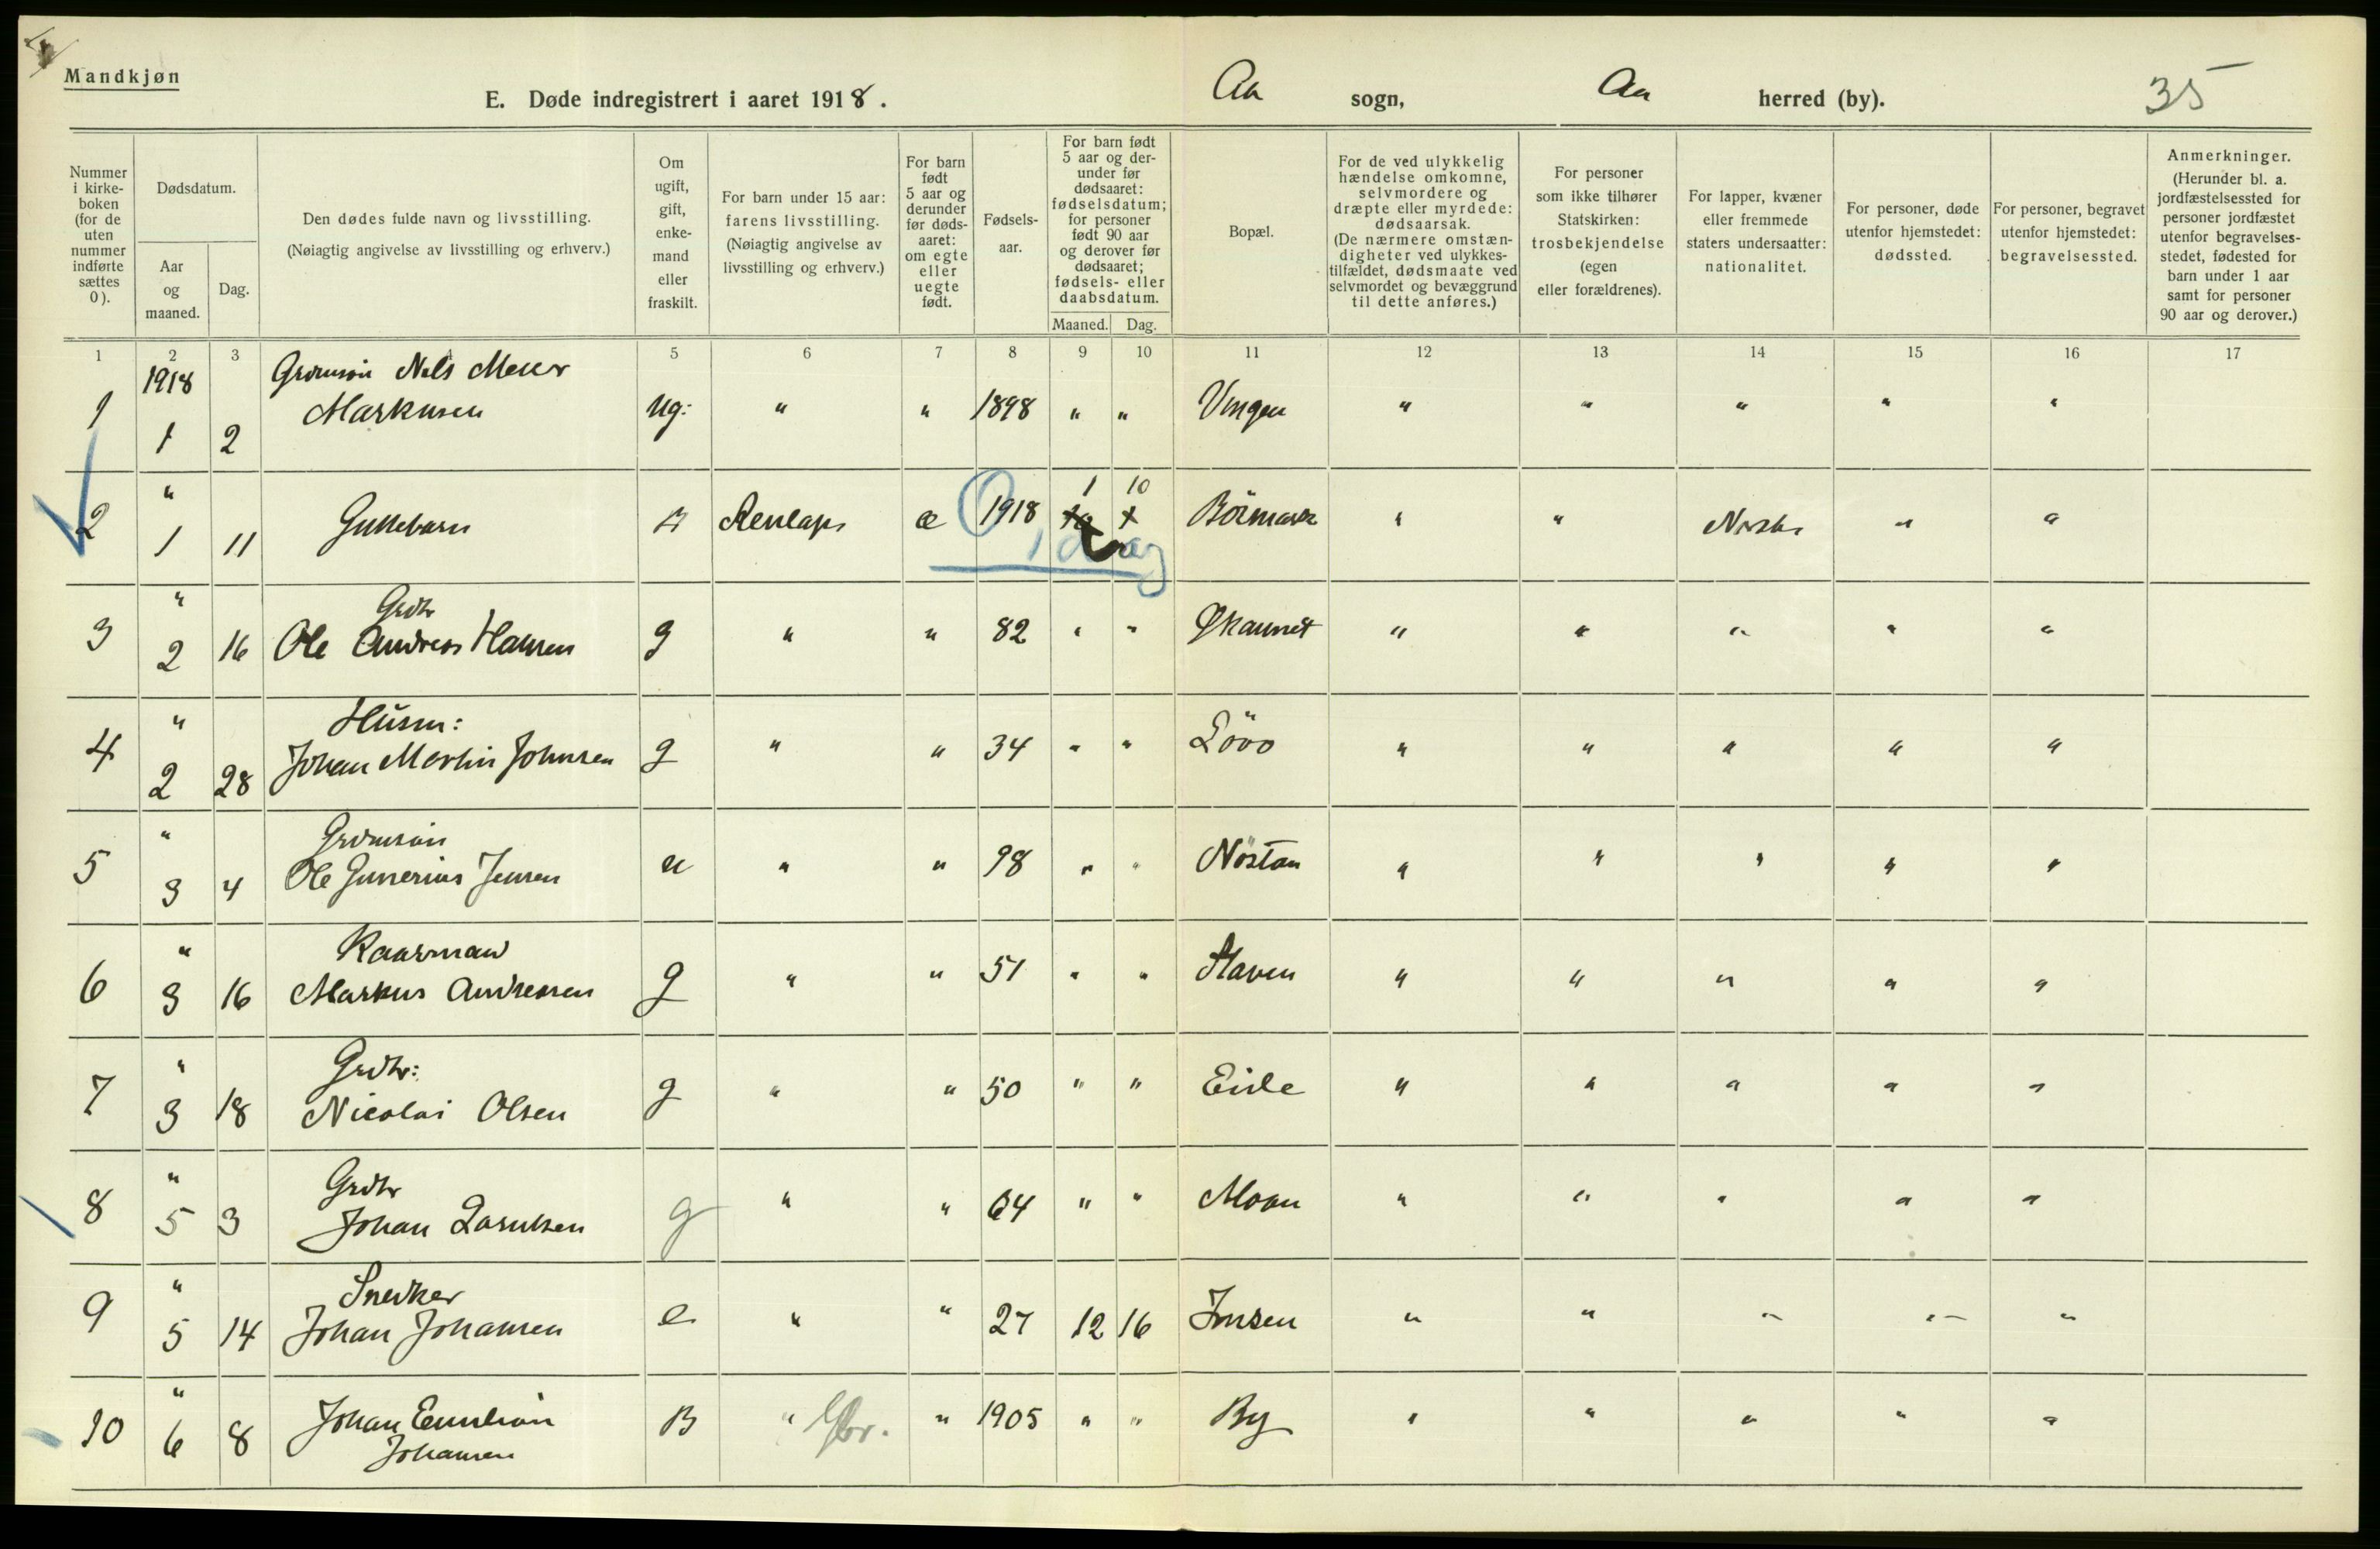 Mandkjøn
E. Døde indregistrert i aaret 1918. Aa sogn, Aa herred (by). 35
Nummer i kirke-boken (for de uten nummer indførte sættes 0).
Dødsdatum.
Aar og maaned.
Dag.
Den dødes fulde navn og livsstilling.
(Nøiagtig angivelse av livsstilling og erhverv.)
Om ugift, gift, enke-mand eller fraskilt.
For barn under 15 aar: farens livsstilling.
(Nøiagtig angivelse av livsstilling og erhverv.)
For barn født 5 aar og derunder før døds-aaret: om egte eller uegte født.
Fødsels-aar.
For barn født 5 aar og der-under før dødsaaret: fødselsdatum; for personer født 90 aar og derover før dødsaaret; fødsels- eller daabsdatum.
Maaned. Dag.
Bopæl.
For de ved ulykkelig hændelse omkomne, selvmordere og dræpte eller myrdede: dødsaarsak.
(De nærmere omstæn-digheter ved ulykkes-tilfældet, dødsmaate ved selvmordet og bevæggrund til dette anføres.)
For personer som ikke tilhører Statskirken: trosbekjendelse (egen eller forældrenes).
For lapper, kvæner eller fremmede staters undersaatter: nationalitet.
For personer, døde utenfor hjemstedet: dødssted.
For personer, begravet utenfor hjemstedet: begravelsessted.
Anmerkninger.
(Herunder bl. a. jordfæstelsessted for personer jordfæstet utenfor begravelses-stedet, fødested for barn under 1 aar samt for personer 90 aar og derover.)
1 2 3 4 5 6 7 8 9 10 11 12 13 14 15 16 17
1918 Grdmsön Nils Meier
1 1 2 Markusen ug: " " 1898 " " Vingen " " " " "
" 1 10
2 1 11 Guttebarn Renlap æ 1918 Börmark " " Norsk " "
1 dag
" Grdbr
3 2 16 Ole Andreas Hansen g " " 82 " " " " " " "
" Husm:
4 2 28 Johan Martin Johnsen g " " 34 " " " " " " "
" Grdmsön
5 3 4 Ole Gunerius Jensen u " " 98 " " Nöstan " " " " "
" Kaarmand
6 3 16 Markus Andreasen g " " 51 " " Staven " " " " "
" Grdbr:
7 3 18 Nicolai Olsen g " " 50 " " Eide " " " " "
" Grdbr
8 5 3 Johan g " " 64 " " Moan " " " " "
" Snedker
9 5 14 Johan Johansen e " " 27 12 16 " " " " "
" Johan
10 6 8 Johansen B " Gbr. " 1905 " " By " " " " "